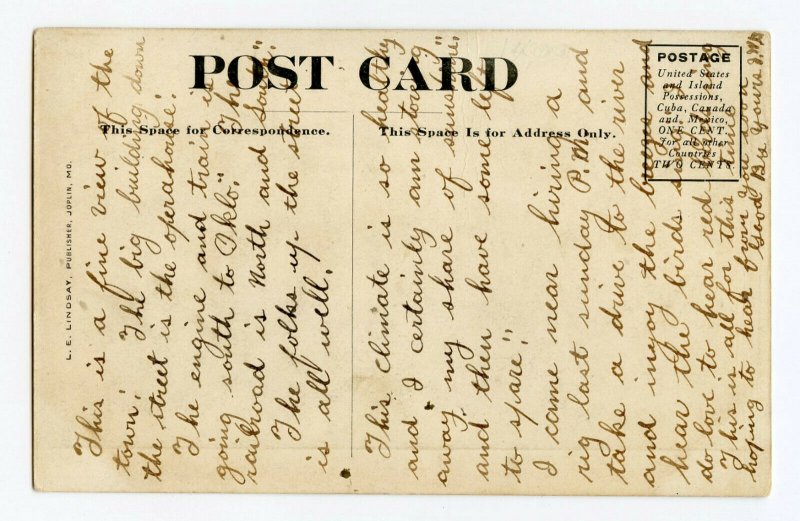 POST CARD
This Space for Correspondence.
This Space Is for Address Only.
POSTAGE
United States
and Island
Possessions,
Cuba, Canada
and Mexico,
ONE CENT.
For all other
Countries
TWO CENTS.
L. E. LINDSAY, PUBLISHER, JOPLIN, MO.
This is a fine view of the
town. The big building down
the street is the operahouse.
The engine and train is
going south to Oklo. The
railroad is North and South.
The folks up the street
is all well.
This climate is so healthy
and I certainly am storeing
away my share of sunshine,
and then have some left
to spare.
I came near hiring a
rig last sunday P.M. and
take a drive to the river
and injoy the breezes and
hear the birds sing
do love to hear red birds sing
This is all for this time
hoping to hear from you soon
Good Bye Yours